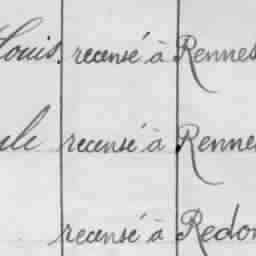 Louis. recensé à Rennes
recensé à Rennes
recensé à Redon